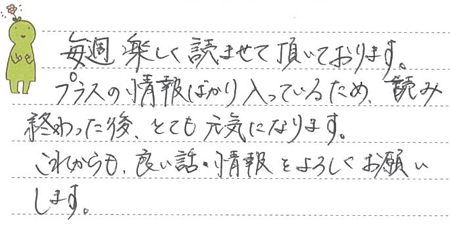 毎週楽しく読ませて頂いております。
プラスの情報ばかり入っているため、読み
終わった後、とても元気になります。
これからも、良い話・情報をよろしくお願い
します。